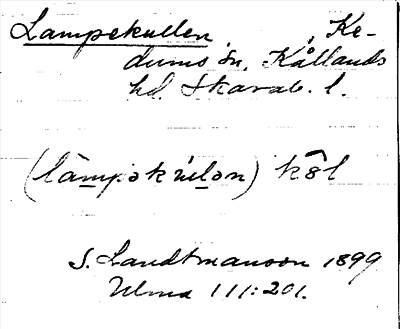 Lampekullen, Ke-
dums sn, Kållands
hd. Skarab. l.
(làmpәkúlәn) kôl
S. Landtmanson 1899
Ulma 111:201.